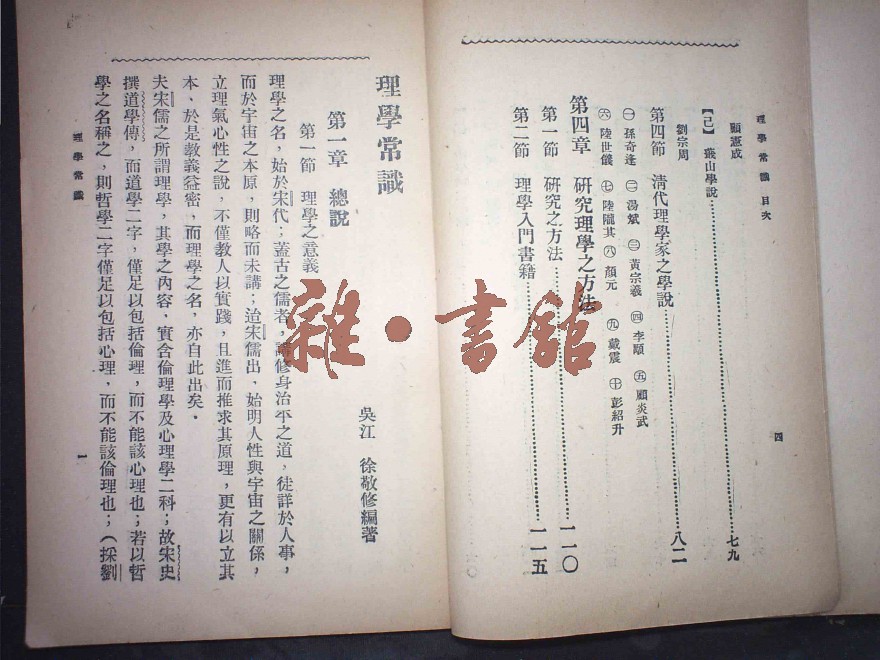 理學常識 目次
顧憲成
【己】 蕺山學說 七九
劉宗周
第四節 清代理學家之學說 八二
㊀孫奇逢 ㊁湯斌 ㊂黃宗羲 ㊃李顒 ㊄顧炎武
㊅陸世儀 ㊆陸隴其 ㊇顏元 ㊈戴震 ㊉彭紹升
第四章 研究理學之方法
第一節 研究之方法 一一〇
第二節 理學入門書籍 一一五
四
理學常識
吳江 徐敬修編著
第一章 總說
第一節 理學之意義
理學之名，始於宋代；蓋古之儒者，講修身治平之道，徒詳於人事，
而於宇宙之本原，則略而未講；迨宋儒出，始明人性與宇宙之關係，
立理氣心性之說，不僅教人以實踐，且進而推求其原理，更有以立其
本、於是教義益密，而理學之名，亦自此出矣。
夫宋儒之所謂理學，其學之內容，實含倫理學及心理學二科；故宋史
撰道學傳，而道學二字，僅足以包括倫理，而不能該心理也；若以哲
學之名稱之，則哲學二字僅足以包括心理，而不能該倫理也；（採劉
理學常識
一
雜·書館